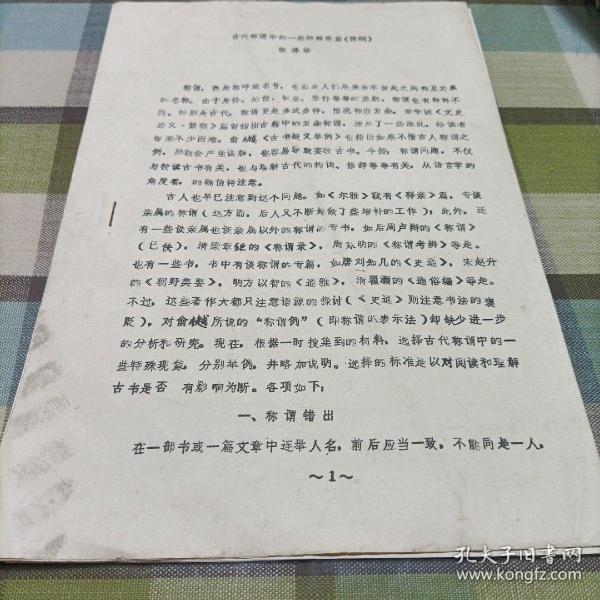 古代称谓中的一些特殊现象(提纲)
张涤华
称谓,既是称呼或名号,也就是人们用来表示彼此之间相互关系
的名称。由于身份、地位、职业、等行等等的差别,称谓也有种种不
同。特别是古代,称谓更是多式多样,情况相当复杂。章学诚《文史
通义·繁称》篇曾指出古籍中的复杂称谓,造成了一些混乱,给读者
带来不少困难。俞樾《古书疑义举例》也指出如果不懂古人称谓之
例,那就会产生误解,也容易导致妄改古书。今按,称谓问题,不仅
与校读古书有关,也与理解古代的构词、修辞等等有关,从语言学的
角度看,的确值得注意。
古人也早已注意到这个问题。如《尔雅》就有《释亲》篇,专谈
亲属的称谓(这方面,后人又不断地做了些增补的工作);此外,还
有一些谈亲属也谈亲属以外的称谓的专书,如后周卢辩的《称谓》
(已佚),清梁章钜的《称谓录》,周家明的《称谓考辨》等是。
也有一些书,书中有谈称谓的专篇,如唐刘知几的《史通》,宋赵升
的《朝野类要》,明方以智的《通雅》,清翟灏的《通俗编》等是。
不过,这些著作大都只注意语源的探讨(《史通》则注意书法的褒
贬),对俞樾所说的“称谓例”(即称谓的表示法)却缺少进一步
的分析和研究。现在,根据一时搜集到的材料,选择古代称谓中的一
些特殊现象,分别举例,并略加说明。选择的标准是以对阅读和理解
古书是否 有影响为断。各项如下:
一、称谓错出
在一部书或一篇文章中连举人名,前后应当一致,不能同是一人,
~1~
孔夫子旧书网
www.kongfz.com